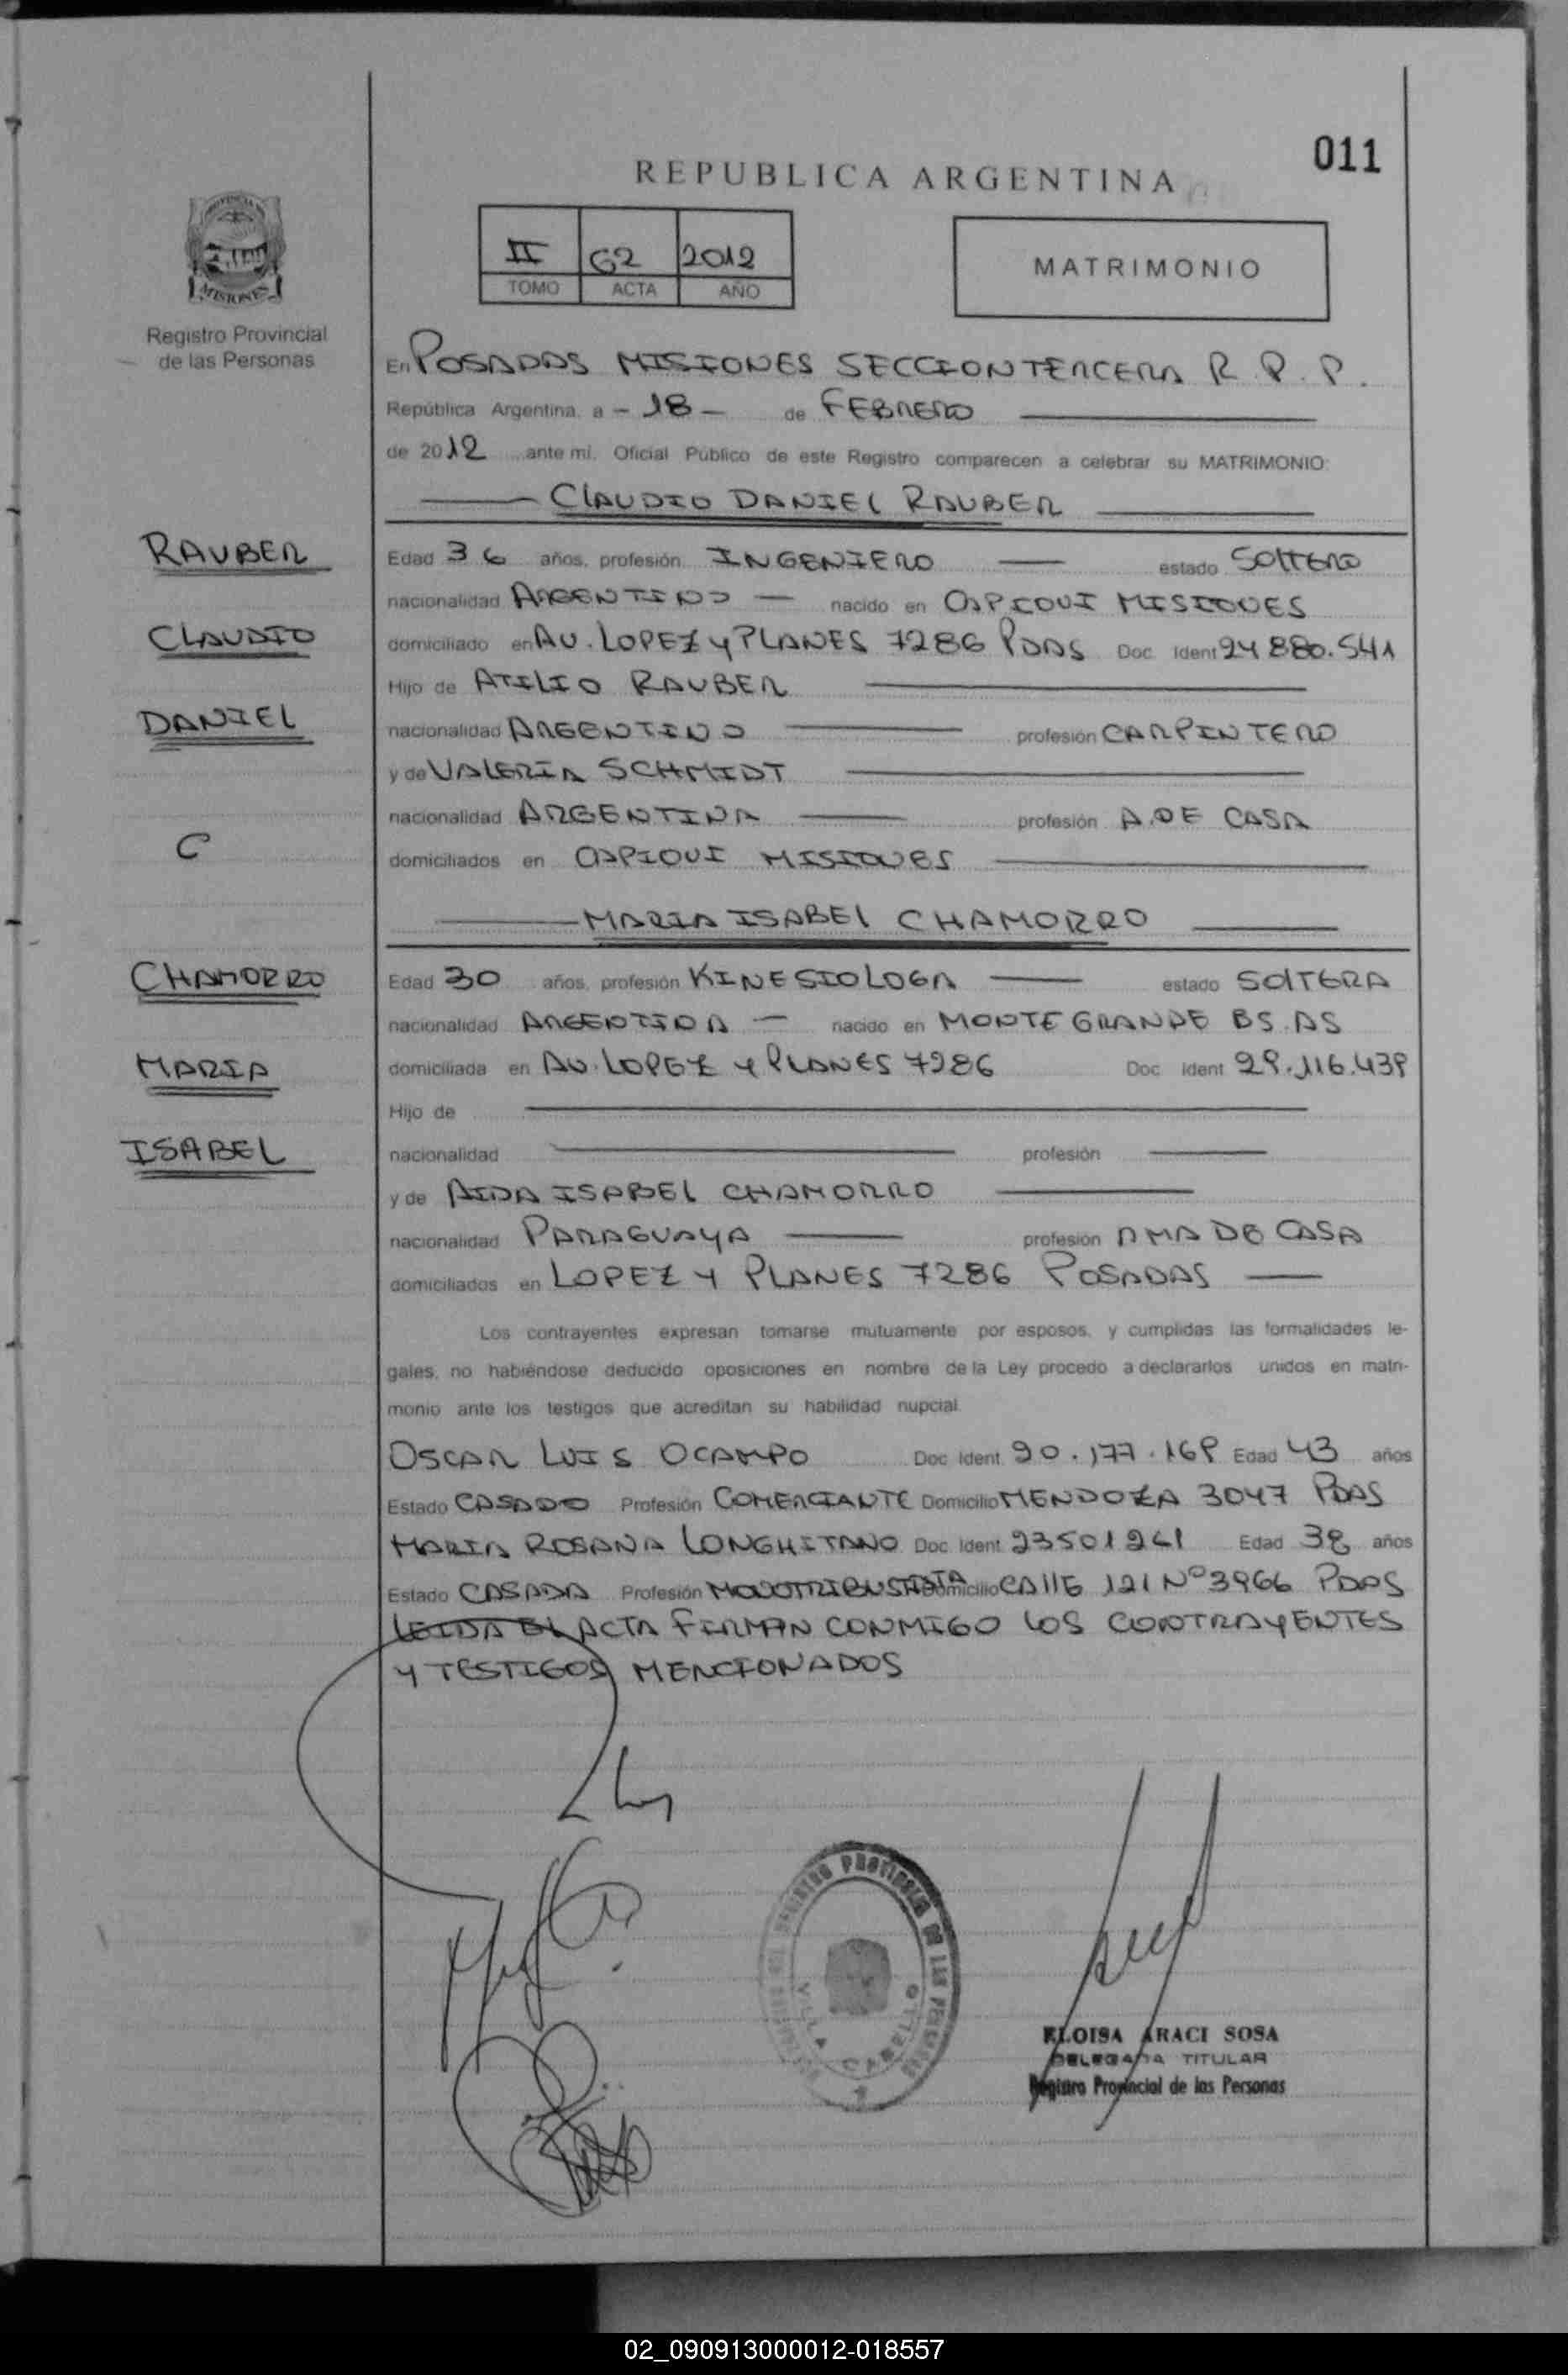 011
REPUBLICA ARGENTINA
II 62 2012
TOMO ACTA AÑO
MATRIMONIO
MISIONES
Registro Provincial
de las Personas
En POSADAS MISIONES SECCION TERCERA R.P.P.
República Argentina, a - 18 - de FEBRERO
de 2012 ante mi, Oficial Público de este Registro comparecen a celebrar su MATRIMONIO:
CLAUDIO DANIEL RAUBER
RAUBER
Edad 36 años, profesión INGENIERO estado SOLTERO
nacionalidad ARGENTINO nacido en CAPIOVI MISIONES
CLAUDIO
domiciliado en AV. LOPEZ y PLANES 7286 PDAS Doc. Ident 24.880.541
Hijo de ATILIO RAUBER
DANIEL
nacionalidad ARGENTINO profesión CARPINTERO
y de VALERIA SCHMIDT
nacionalidad ARGENTINA profesión A.DE CASA
C
domiciliados en CAPIOVI MISIONES
MARIA ISABEL CHAMORRO
CHAMORRO
Edad 30 años, profesión KINESIOLOGA estado SOLTERA
nacionalidad ARGENTINA nacido en MONTE GRANDE BS.AS
MARIA
domiciliada en AV. LOPEZ y PLANES 7286 Doc. Ident 29.116.439
Hijo de
ISABEL
nacionalidad profesión
y de AIDA ISABEL CHAMORRO
nacionalidad PARAGUAYA profesión AMA DE CASA
domiciliados en LOPEZ Y PLANES 7286 POSADAS
Los contrayentes expresan tomarse mutuamente por esposos, y cumplidas las formalidades le-
gales, no habiéndose deducido oposiciones en nombre de la Ley procedo a declararlos unidos en matri-
monio ante los testigos que acreditan su habilidad nupcial.
OSCAR LUIS OCAMPO Doc. Ident. 20.177.169 Edad 43 años
Estado CASADO Profesión COMERCIANTE Domicilio MENDOZA 3047 PDAS
MARIA ROSANA LONGHITANO Doc. Ident. 23501261 Edad 38 años
Estado CASADA Profesión MONOTRIBUSTATA Domicilio CALLE 121 Nº 3966 PDAS
LEIDA EL ACTA FIRMAN CONMIGO LOS CONTRAYENTES
Y TESTIGOS MENCIONADOS
REGISTRO PROVINCIAL DE LAS PERSONAS
VILLA CABELLO
ELOISA ARACI SOSA
DELEGADA TITULAR
Registro Provincial de las Personas
02_090913000012-018557